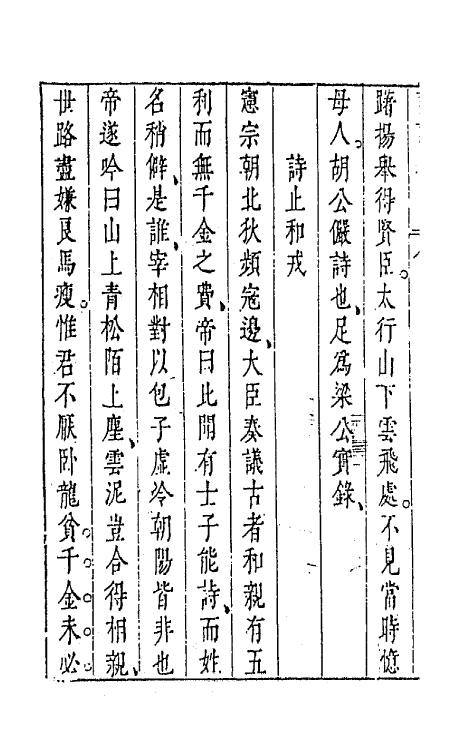 躋揚舉得賢臣太行山下雲飛處不見當時憶
母人胡公儼詩也足為梁公實錄
詩止和戎
憲宗朝北狄頻寇邊大臣奏議古者和親有五
利而無千金之費帝曰比聞有士子能詩而姓
名稍僻是誰宰相對以包子虛冷朝陽皆非也
帝遂吟曰山上青松陌上塵雲泥豈合得相親
世路盡嫌良馬瘦惟君不厭卧龍貧千金未必